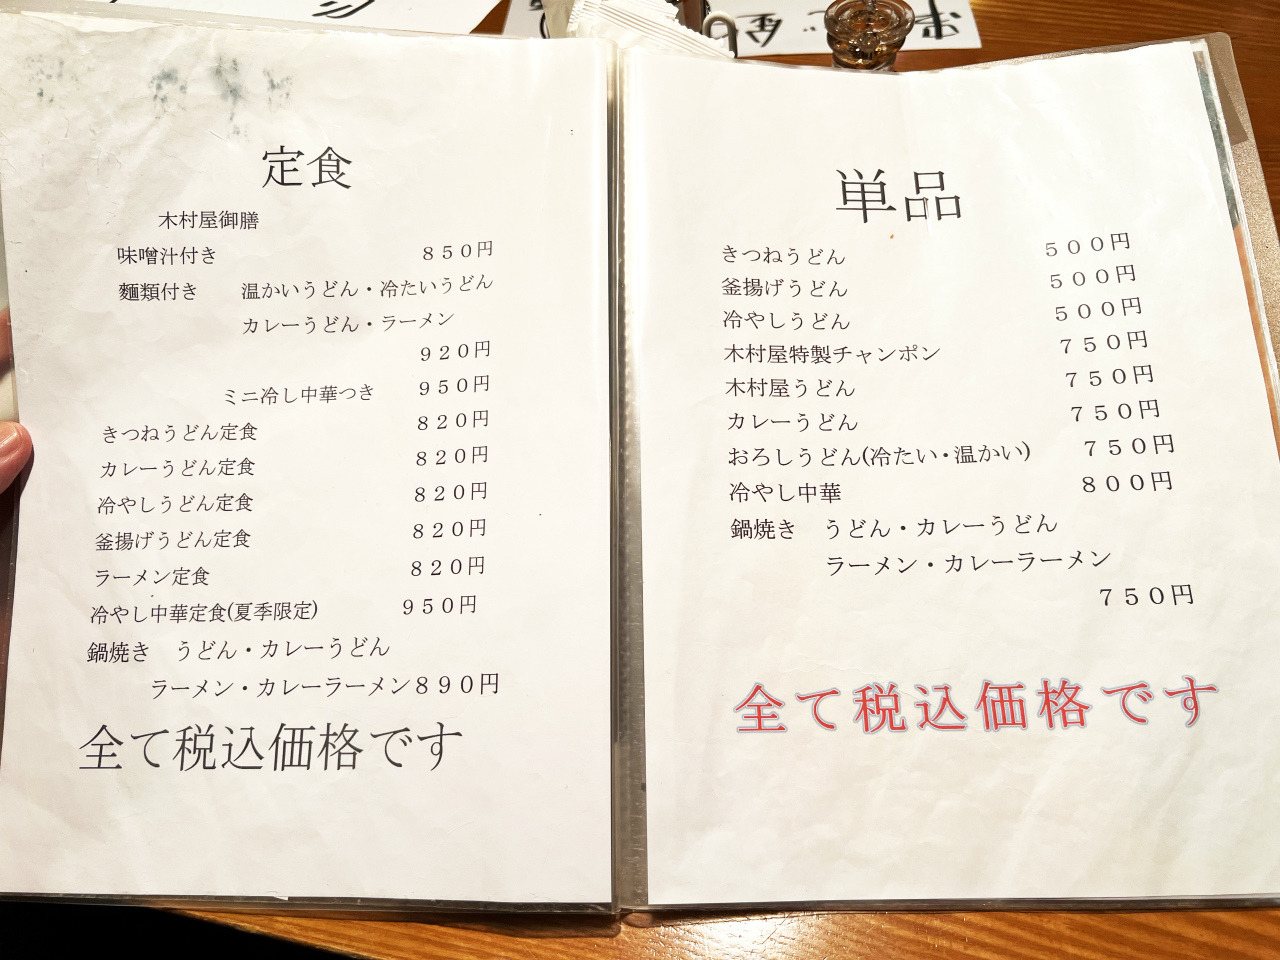 定食
木村屋御膳
味噌汁付き 850円
麵類付き 温かいうどん・冷たいうどん
カレーうどん・ラーメン
920円
ミニ冷し中華つき 950円
きつねうどん定食 820円
カレーうどん定食 820円
冷やしうどん定食 820円
釜揚げうどん定食 820円
ラーメン定食 820円
冷やし中華定食(夏季限定) 950円
鍋焼き うどん・カレーうどん
ラーメン・カレーラーメン890円
全て税込価格です
単品
きつねうどん 500円
釜揚げうどん 500円
冷やしうどん 500円
木村屋特製チャンポン 750円
木村屋うどん 750円
カレーうどん 750円
おろしうどん(冷たい・温かい) 750円
冷やし中華 800円
鍋焼き うどん・カレーうどん
ラーメン・カレーラーメン
750円
全て税込価格です